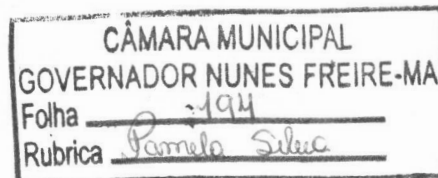 CÂMARA MUNICIPAL
GOVERNADOR NUNES FREIRE-MA
Folha 194
Rubrica Pamela Silva